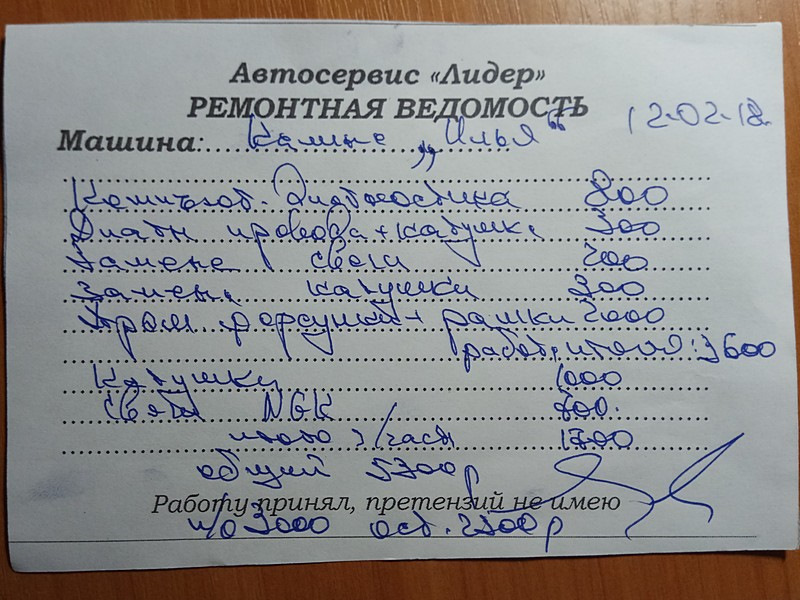 Автосервис «Лидер»
РЕМОНТНАЯ ВЕДОМОСТЬ
12-02-18
Машина: Калина „Илья“
Компьют. Диагностика 800
Диагн провода + катушка 300
Замена свечи 200
Замена катушки 300
Пром форсунок + рампки 2000
работ. итого: 3600
Катушки 1000
свечи NGK 700
итого з/части 1700
общий 5300р
Работу принял, претензий не имею
и/о 3000 ост. 2300р